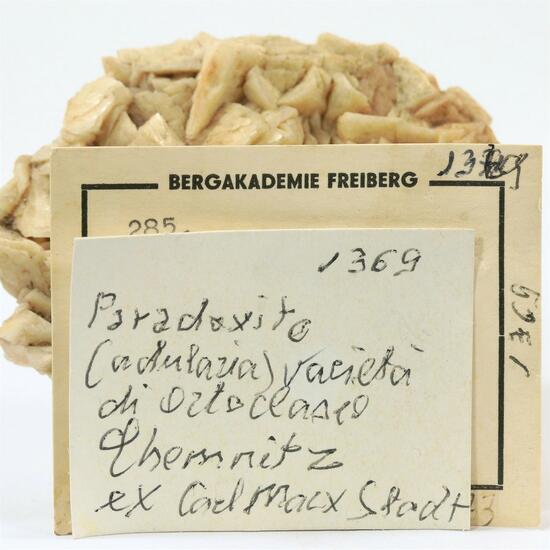 BERGAKADEMIE FREIBERG
1369
285.
1369
1369
Paradoxito
(adularia) varietà
di ortoclasio
Chemnitz
ex Carl Marx Stadt
3